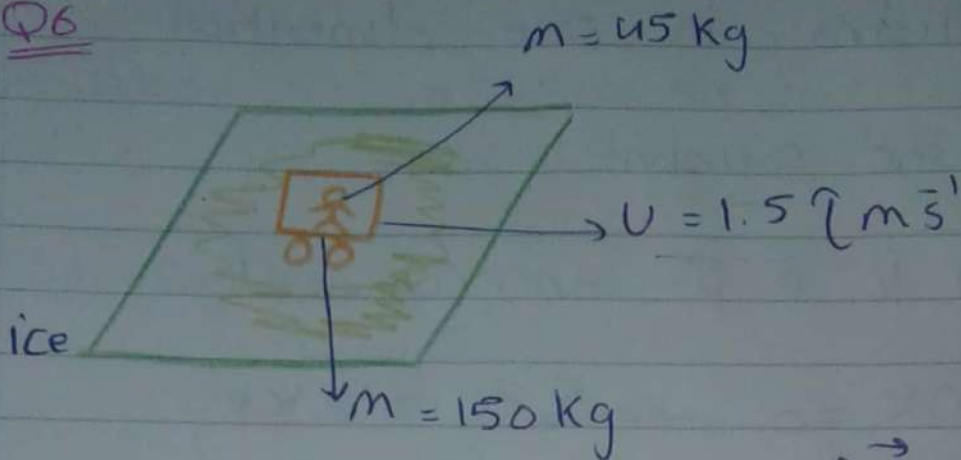 Q6
m = 45 kg
U = 1.5 î m s⁻¹
ice
m = 150 kg